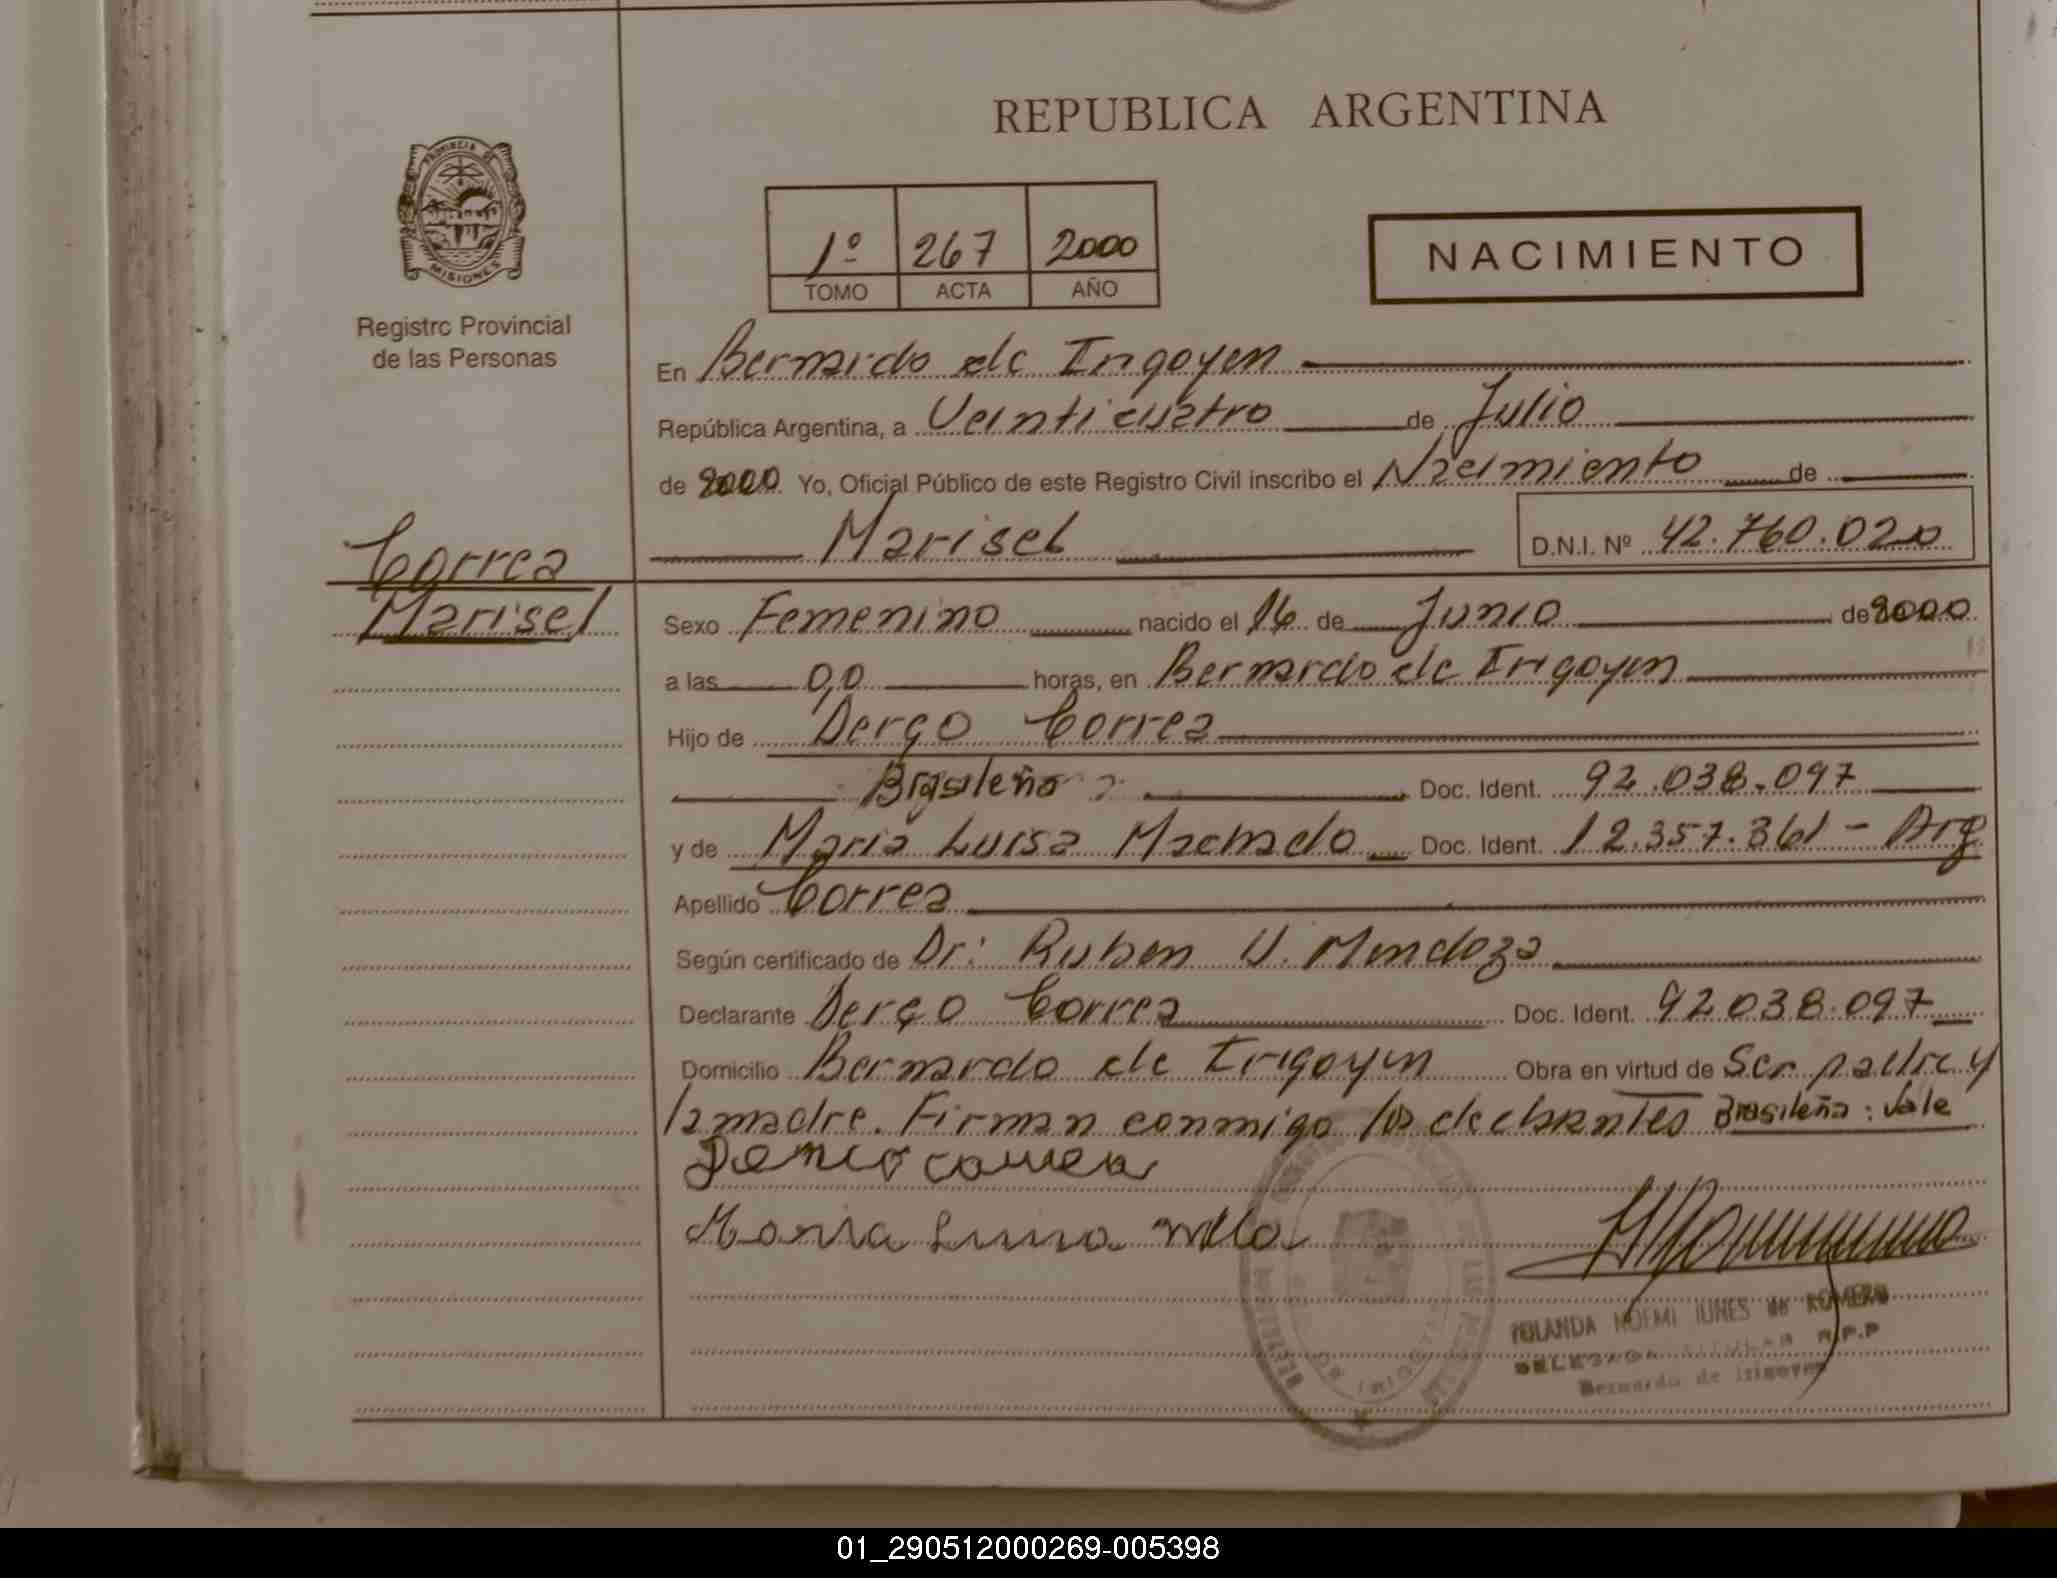 REPUBLICA ARGENTINA
PROVINCIA DE
MISIONES
Registro Provincial
de las Personas
1º 267 2000
TOMO ACTA AÑO
NACIMIENTO
En Bernardo de Irigoyen
República Argentina, a Veinticuatro de Julio
de 2000 Yo, Oficial Público de este Registro Civil inscribo el Nacimiento de
Marisel D.N.I. Nº 42.760.020
Correa
Marisel
Sexo Femenino nacido el 16 de Junio de 2000
a las 0,0 horas, en Bernardo de Irigoyen
Hijo de Derço Correa
Brasileño Doc. Ident. 92.038.097
y de Maria Luisa Machado Doc. Ident. 12.357.361 - Arg
Apellido Correa
Según certificado de Dr: Ruben V. Mendoza
Declarante Derço Correa Doc. Ident. 92.038.097
Domicilio Bernardo de Irigoyen Obra en virtud de Ser padre y
la madre. Firman conmigo los declarantes Brasileña: Vale
Correa
Maria Luisa
YOLANDA NOEMI IUNES de ROMERO
DELEGADA TITULAR R.P.P
Bernardo de Irigoyen
01_290512000269-005398